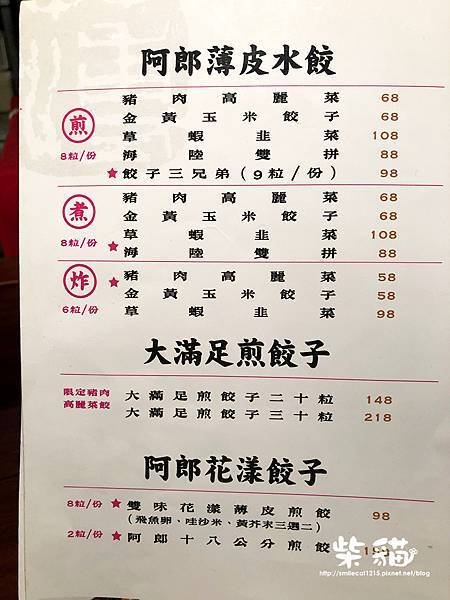 阿郎薄皮水餃
煎
8粒/份
豬肉高麗菜 68
金黃玉米餃子 68
草蝦韭菜 108
海陸雙拼 88
★餃子三兄弟(9粒/份) 98
煮
8粒/份
豬肉高麗菜 68
金黃玉米餃子 68
草蝦韭菜 108
★海陸雙拼 88
炸
6粒/份
★豬肉高麗菜 58
金黃玉米餃子 58
草蝦韭菜 98
大滿足煎餃子
限定豬肉
高麗菜餃
大滿足煎餃子二十粒 148
大滿足煎餃子三十粒 218
阿郎花漾餃子
8粒/份 ★雙味花漾薄皮煎餃 98
(飛魚卵、哇沙米、黃芥末三選二)
2粒/份 ★阿郎十八公分煎餃
柴貓
http://smilecat1215.pixnet.net/blog